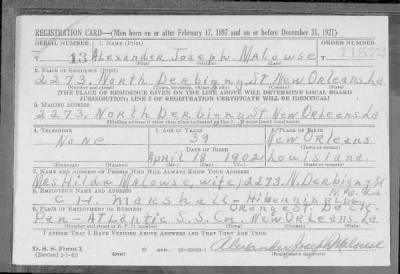 REGISTRATION CARD—(Men born on or after February 17, 1897 and on or before December 31, 1921)
SERIAL NUMBER 1. NAME (Print) ORDER NUMBER
T 13 Alexander Joseph Malowse 11572
(First) (Middle) (Last)
2. PLACE OF RESIDENCE (Print)
2273. North Derbigny St New Orleans. La
(Number and street) (Town, township, village, or city) (County) (State)
[THE PLACE OF RESIDENCE GIVEN ON THE LINE ABOVE WILL DETERMINE LOCAL BOARD
JURISDICTION; LINE 2 OF REGISTRATION CERTIFICATE WILL BE IDENTICAL]
3. MAILING ADDRESS
2273. North Derbigny St New Orleans La
[Mailing address if other than place indicated on line 2. If same insert word same]
4. TELEPHONE 5. AGE IN YEARS 6. PLACE OF BIRTH
None 39 New Orleans
DATE OF BIRTH (Town or county)
April 18 1902 Louisiana
(Exchange) (Number) (Mo.) (Day) (Yr.) (State or country)
7. NAME AND ADDRESS OF PERSON WHO WILL ALWAYS KNOW YOUR ADDRESS
Mrs Hilda Malowse, wife, 2273. N. Derbigny St
8. EMPLOYER'S NAME AND ADDRESS
C H. Marshall - Hibernia Bldg
9. PLACE OF EMPLOYMENT OR BUSINESS Orange St. Dock
Pan-Atlantic S.S. Co. New Orleans. La
(Number and street or R. F. D. number) (Town) (County) (State)
I AFFIRM THAT I HAVE VERIFIED ABOVE ANSWERS AND THAT THEY ARE TRUE.
D. S. S. Form 1
(Revised 1-1-42) (over) Alexander Joseph Malowse